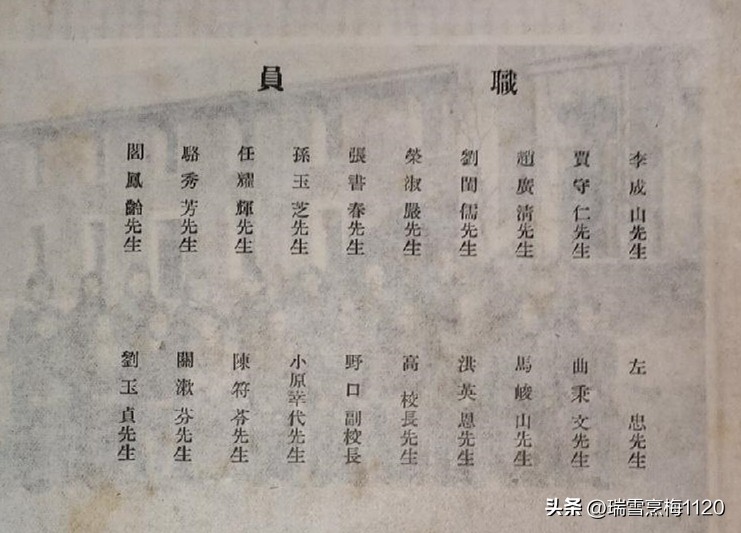 職員
李成山先生
賈守仁先生
趙廣清先生
劉閏儒先生
榮淑嚴先生
張書春先生
孫玉芝先生
任耀輝先生
駱秀芳先生
閻鳳齡先生
左忠先生
曲秉文先生
馬峻山先生
洪英恩先生
高校長先生
野口副校長
小原幸代先生
陳符苓先生
關漱芬先生
劉玉貞先生
头条 @瑞雪烹梅1120